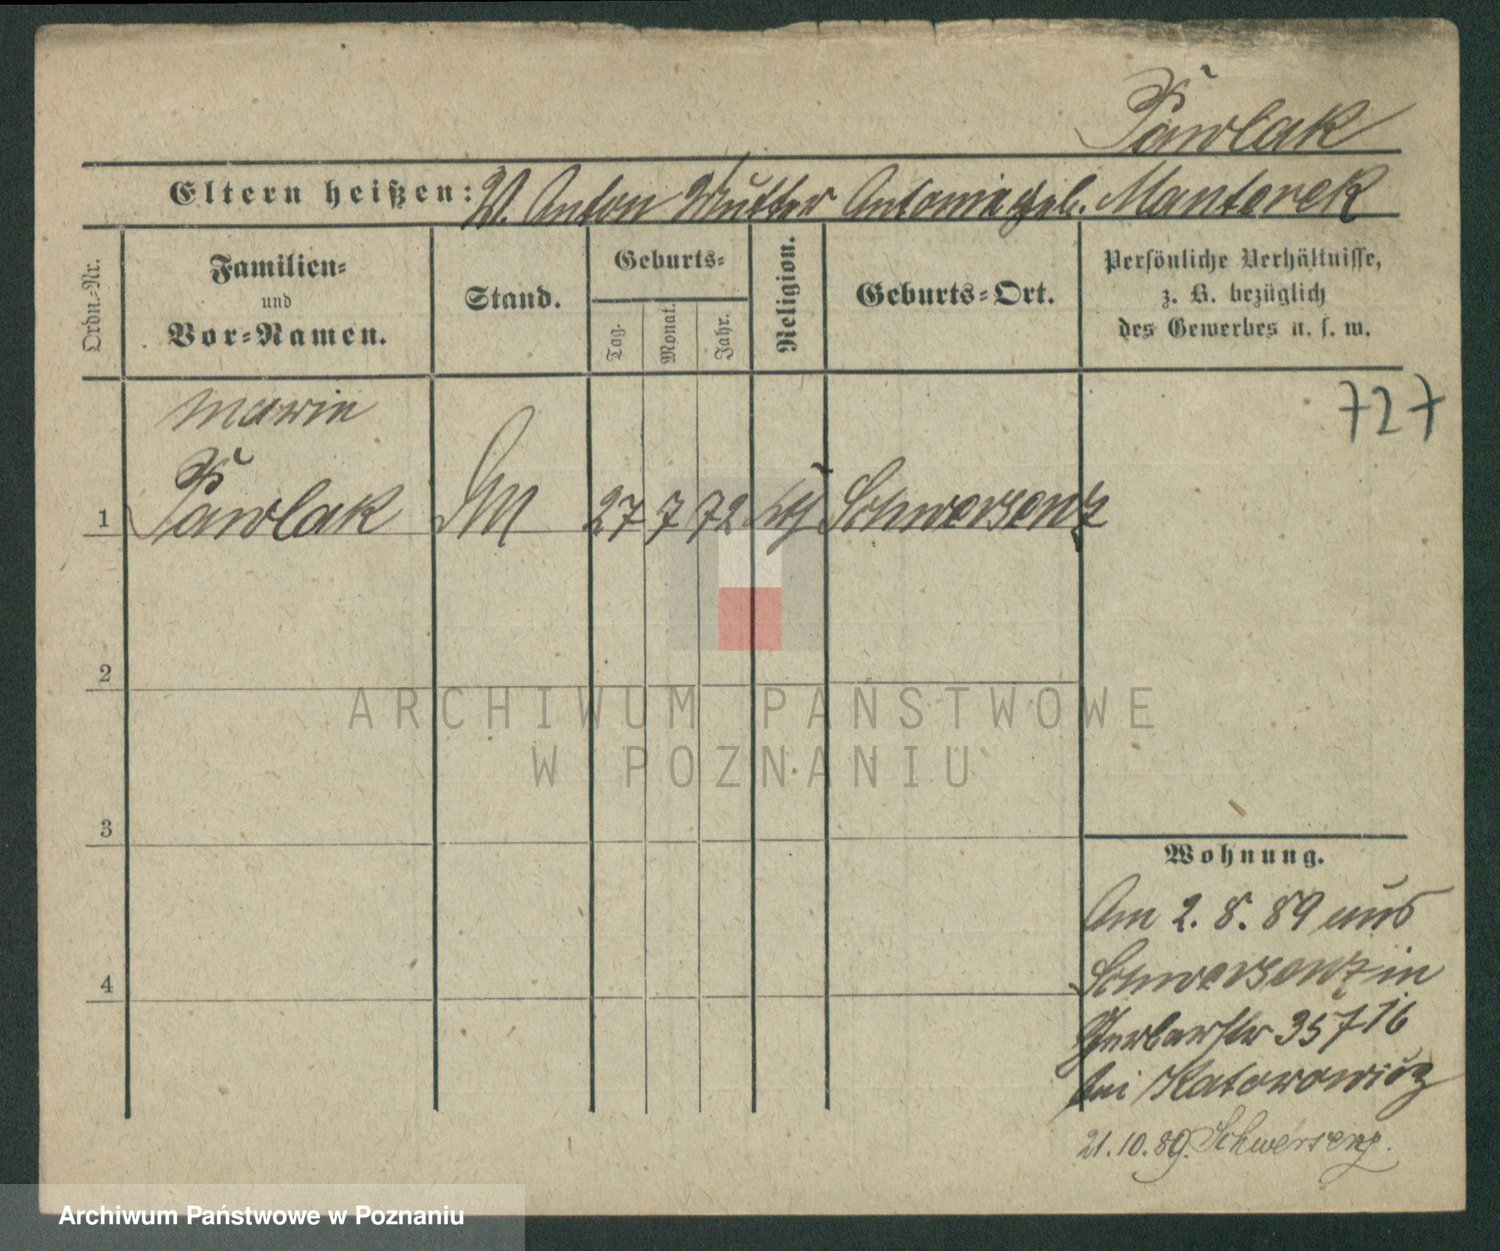 Pawlak
Eltern heißen: V. Anton Mutter Antonie geb. Mantorek
Ordn.-Nr.
Familien-
und
Vor-Namen.
Stand.
Geburts-
Tag.
Monat.
Jahr.
Religion.
Geburts-Ort.
Persönliche Verhältnisse,
z. B. bezüglich
des Gewerbes u. s. w.
727
Marie
1 Pawlak 27 7 72 Schwersenz
2
3
4
ARCHIWUM PAŃSTWOWE
W POZNANIU
Wohnung.
Am 2. 8. 89 aus
Schwersenz in
Gerberstr
bei
21.10.89. Schwersenz.
Archiwum Państwowe w Poznaniu